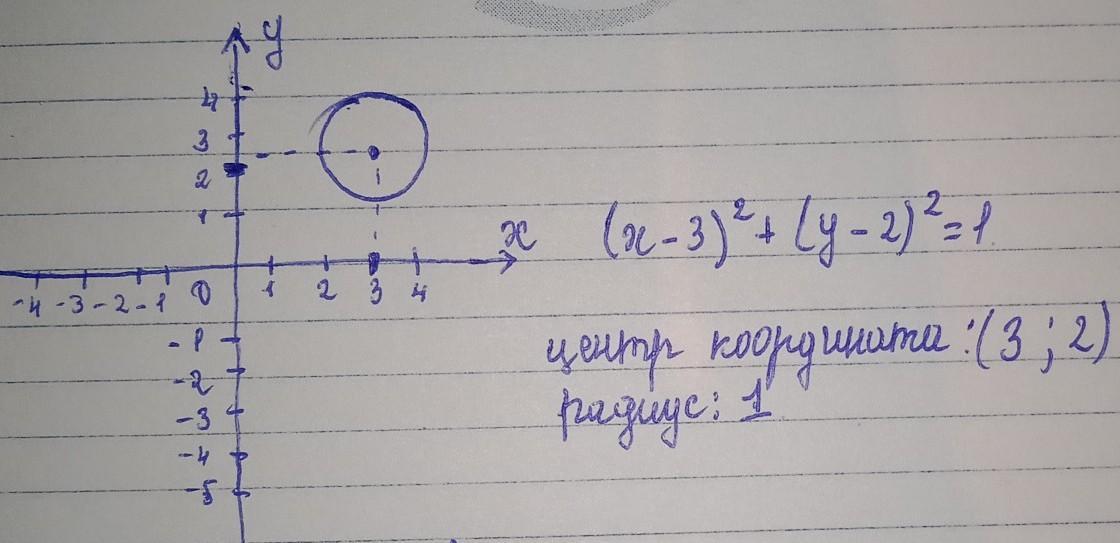 y
4
3
2
1
x
-4 -3 -2 -1 0 1 2 3 4
-1
-2
-3
-4
-5
(x-3)²+(y-2)²=1
центр координата:(3;2)
радиус: 1